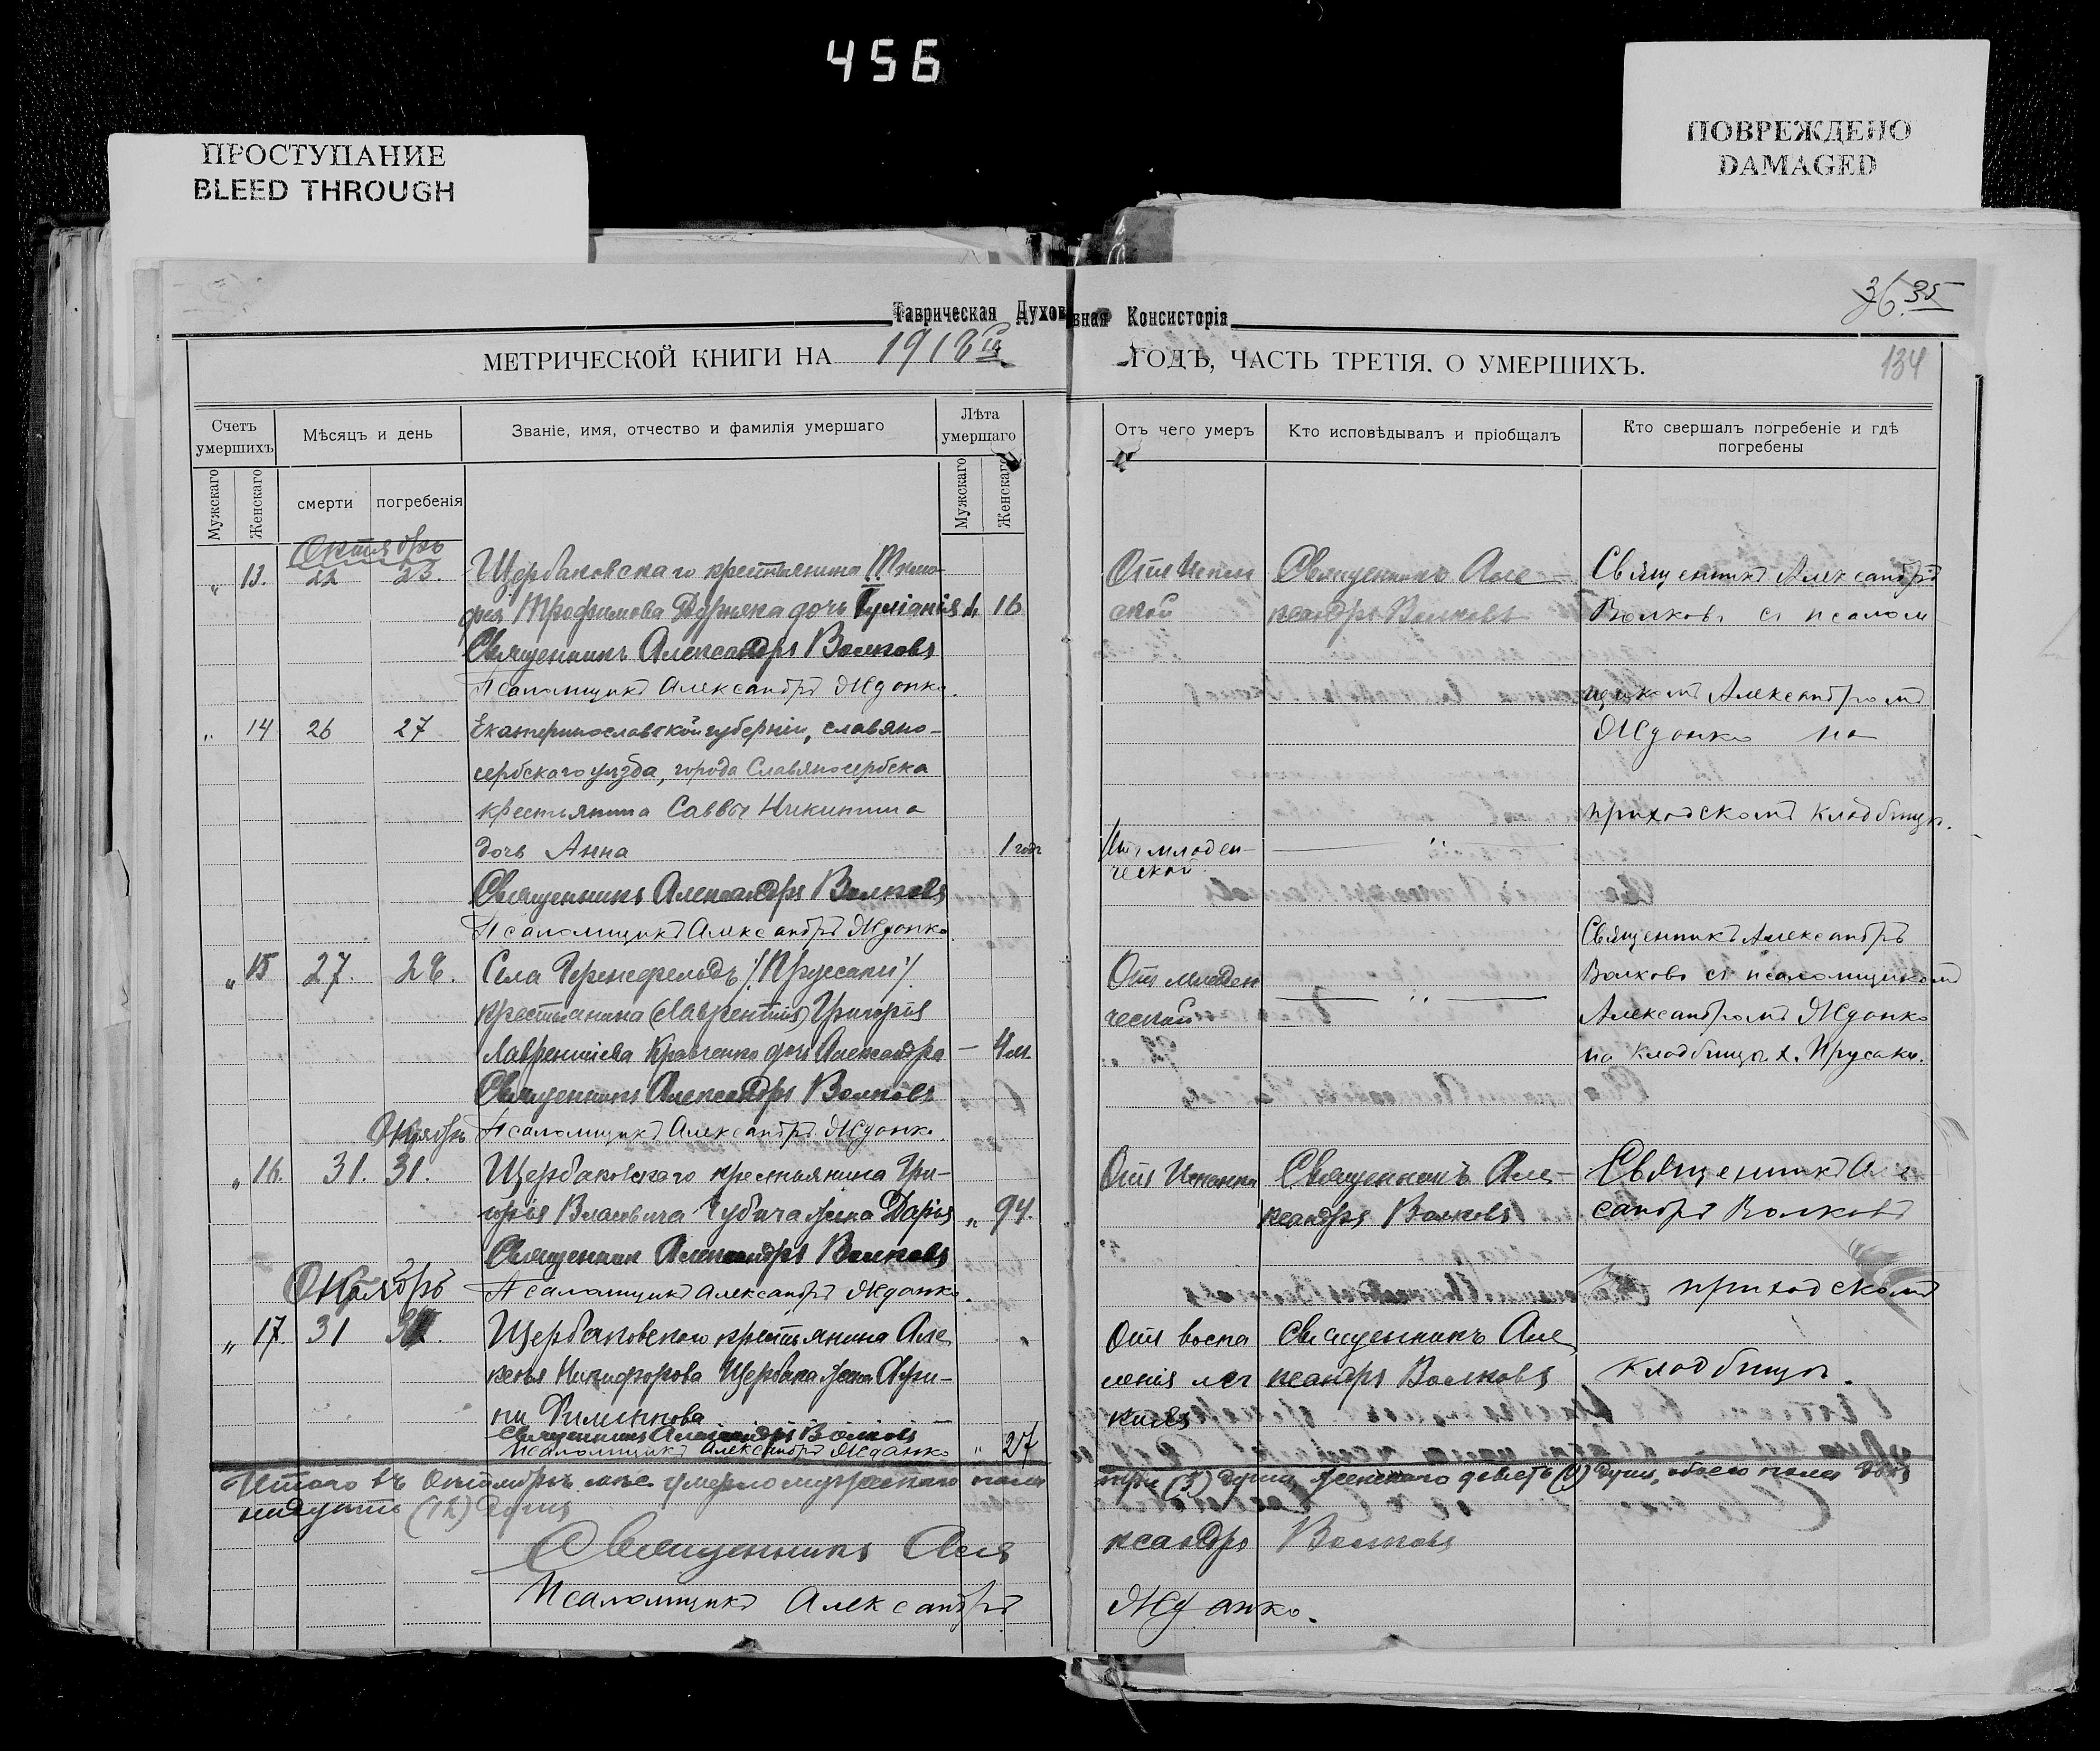 456
ПРОСТУПАНИЕ
BLEED THROUGH
ПОВРЕЖДЕНО
DAMAGED
Таврическая Духовная Консисторія
36. 35
МЕТРИЧЕСКОЙ КНИГИ НА 1918й ГОДЪ, ЧАСТЬ ТРЕТІЯ. О УМЕРШИХЪ.
134
Счетъ умершихъ
Мужскаго
Женскаго
Мѣсяцъ и день
смерти
погребенія
Званіе, имя, отчество и фамилія умершаго
Лѣта умершаго
Мужскаго
Женскаго
Отъ чего умеръ
Кто исповѣдывалъ и пріобщалъ
Кто свершалъ погребеніе и гдѣ погребены
Октябрь
" 13. 22 23.
Щербаковскаго крестьянина Тимо-
фея Трофимова дочь Іуліанія 16
Священникъ Александръ Волковъ
Псаломщикъ Александръ Жданко.
Отъ Испан
ской
Священникъ Але-
ксандръ Волковъ
Священникъ Александръ
Волковъ съ псалом
щикомъ Александромъ
Жданко на
приходскомъ кладбищѣ.
" 14 26 27
Екатеринославской губерніи, славяно-
сербскаго уѣзда, города Славяносербска
крестьянина Саввы Никитина
дочь Анна 1 годъ
Священникъ Александръ Волковъ
Псаломщикъ Александръ Жданко
Отъ младен-
ческой
"
" 15 27. 28.
Села /Прусаки/
крестьянина (Лаврентія) Григорія
Лаврентіева Кравченко дочь Александра — 4 м.
Священникъ Александръ Волковъ
Псаломщикъ Александръ Жданко.
Отъ младен
ческой
"
Священникъ Александръ
Волковъ съ псаломщикомъ
Александромъ Жданко
на кладбищѣ х. Прусаки.
Октябрь
" 16. 31. 31.
Щербаковскаго крестьянина Гри-
горія Власовича жена Дарія " 94.
Священник Александръ Волковъ
Псаломщикъ Александръ Жданко.
Отъ Испанки
Священникъ Але-
ксандръ Волковъ
Священникъ Але
сандръ Волковъ
приходскомъ
кладбищѣ.
Октябрь
" 17. 31
Щербаковскаго крестьянина Але
ксѣя Никифорова Щербака жена
Священникъ Александръ Волковъ
Псаломщикъ Александръ Жданко " 27
Отъ воспа
ленія лег
кихъ
Священникъ Але
ксандръ Волковъ
Итого въ Октябрѣ мѣс. умерло мужескаго пола три (3) души, женскаго девять (9) душъ, обоего пола двѣ
надцать (12) душъ
Священникъ Але ксандръ Волковъ
Псаломщикъ Александръ Жданко.